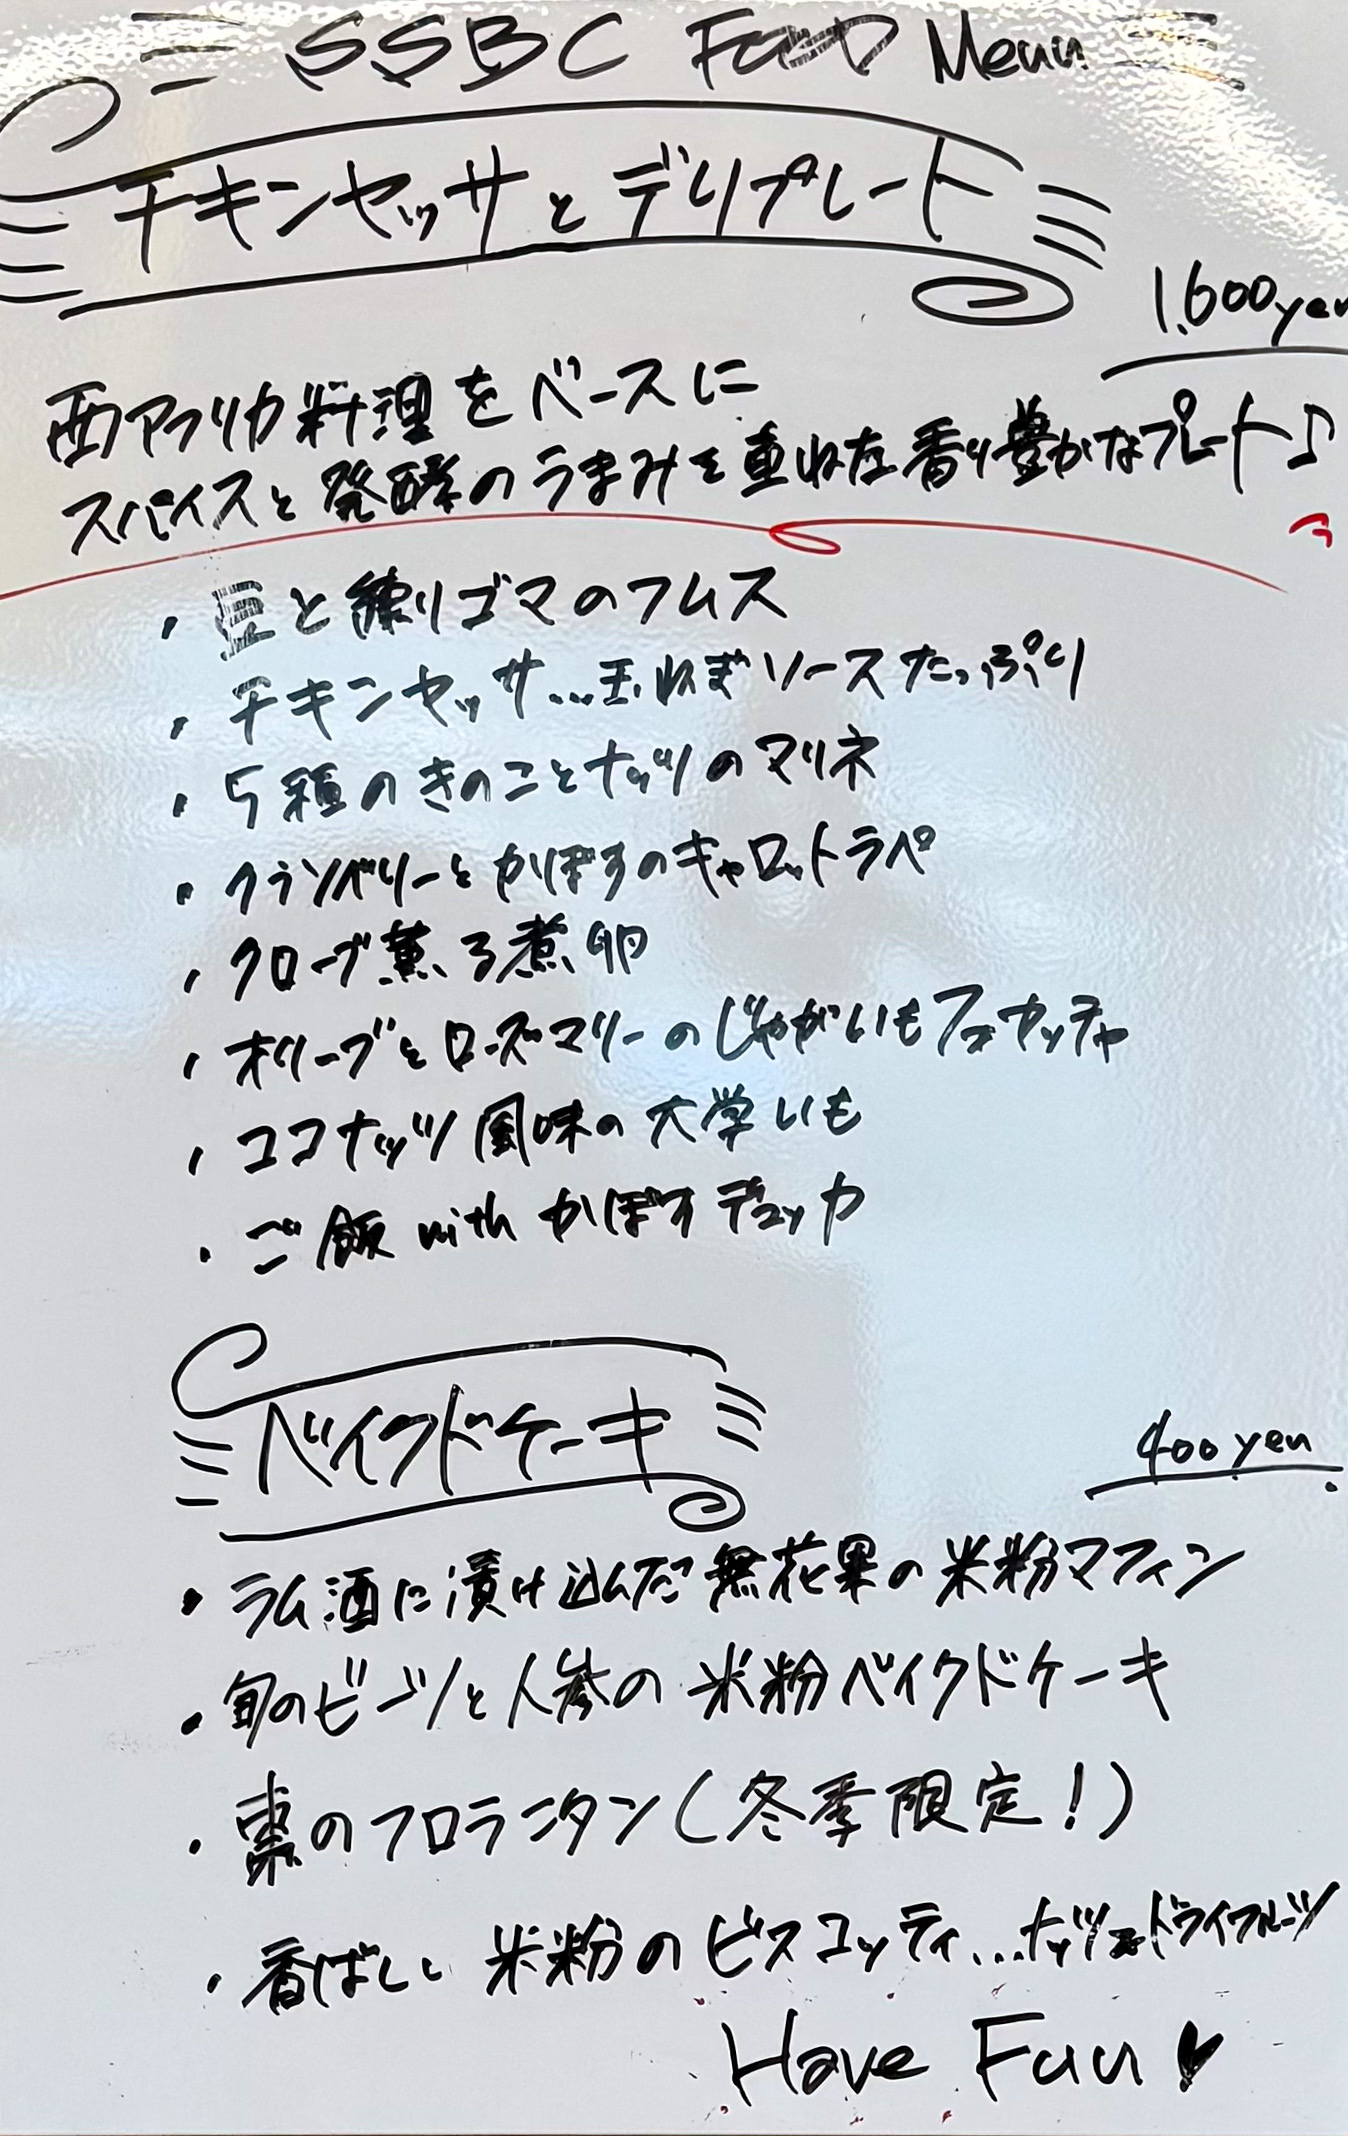 SSBC Food Menu
チキンヤッサとデリプレート
1,600yen
西アフリカ料理をベースに
スパイスと発酵のうまみを重ねた香り豊かなプレート♪
・豆と練りゴマのフムス
・チキンヤッサ...玉ねぎソースたっぷり
・5種のきのことナッツのマリネ
・クランベリーとかぼすのキャロットラペ
・クローブ薫る煮卵
・オリーブとローズマリーのじゃがいもフォカッチャ
・ココナッツ風味の大学いも
・ご飯 with かぼすデュッカ
ベイクドケーキ
400 yen
・ラム酒に漬け込んだ無花果の米粉マフィン
・旬のビーツと人参の米粉ベイクドケーキ
・棗のフロランタン(冬季限定!)
・香ばしい米粉のビスコッティ...ナッツとドライフルーツ
Have Fun ♥